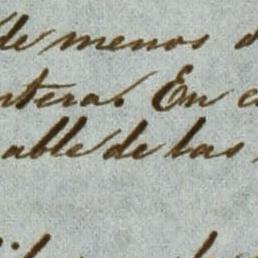 de menos
ntera. En
able de las